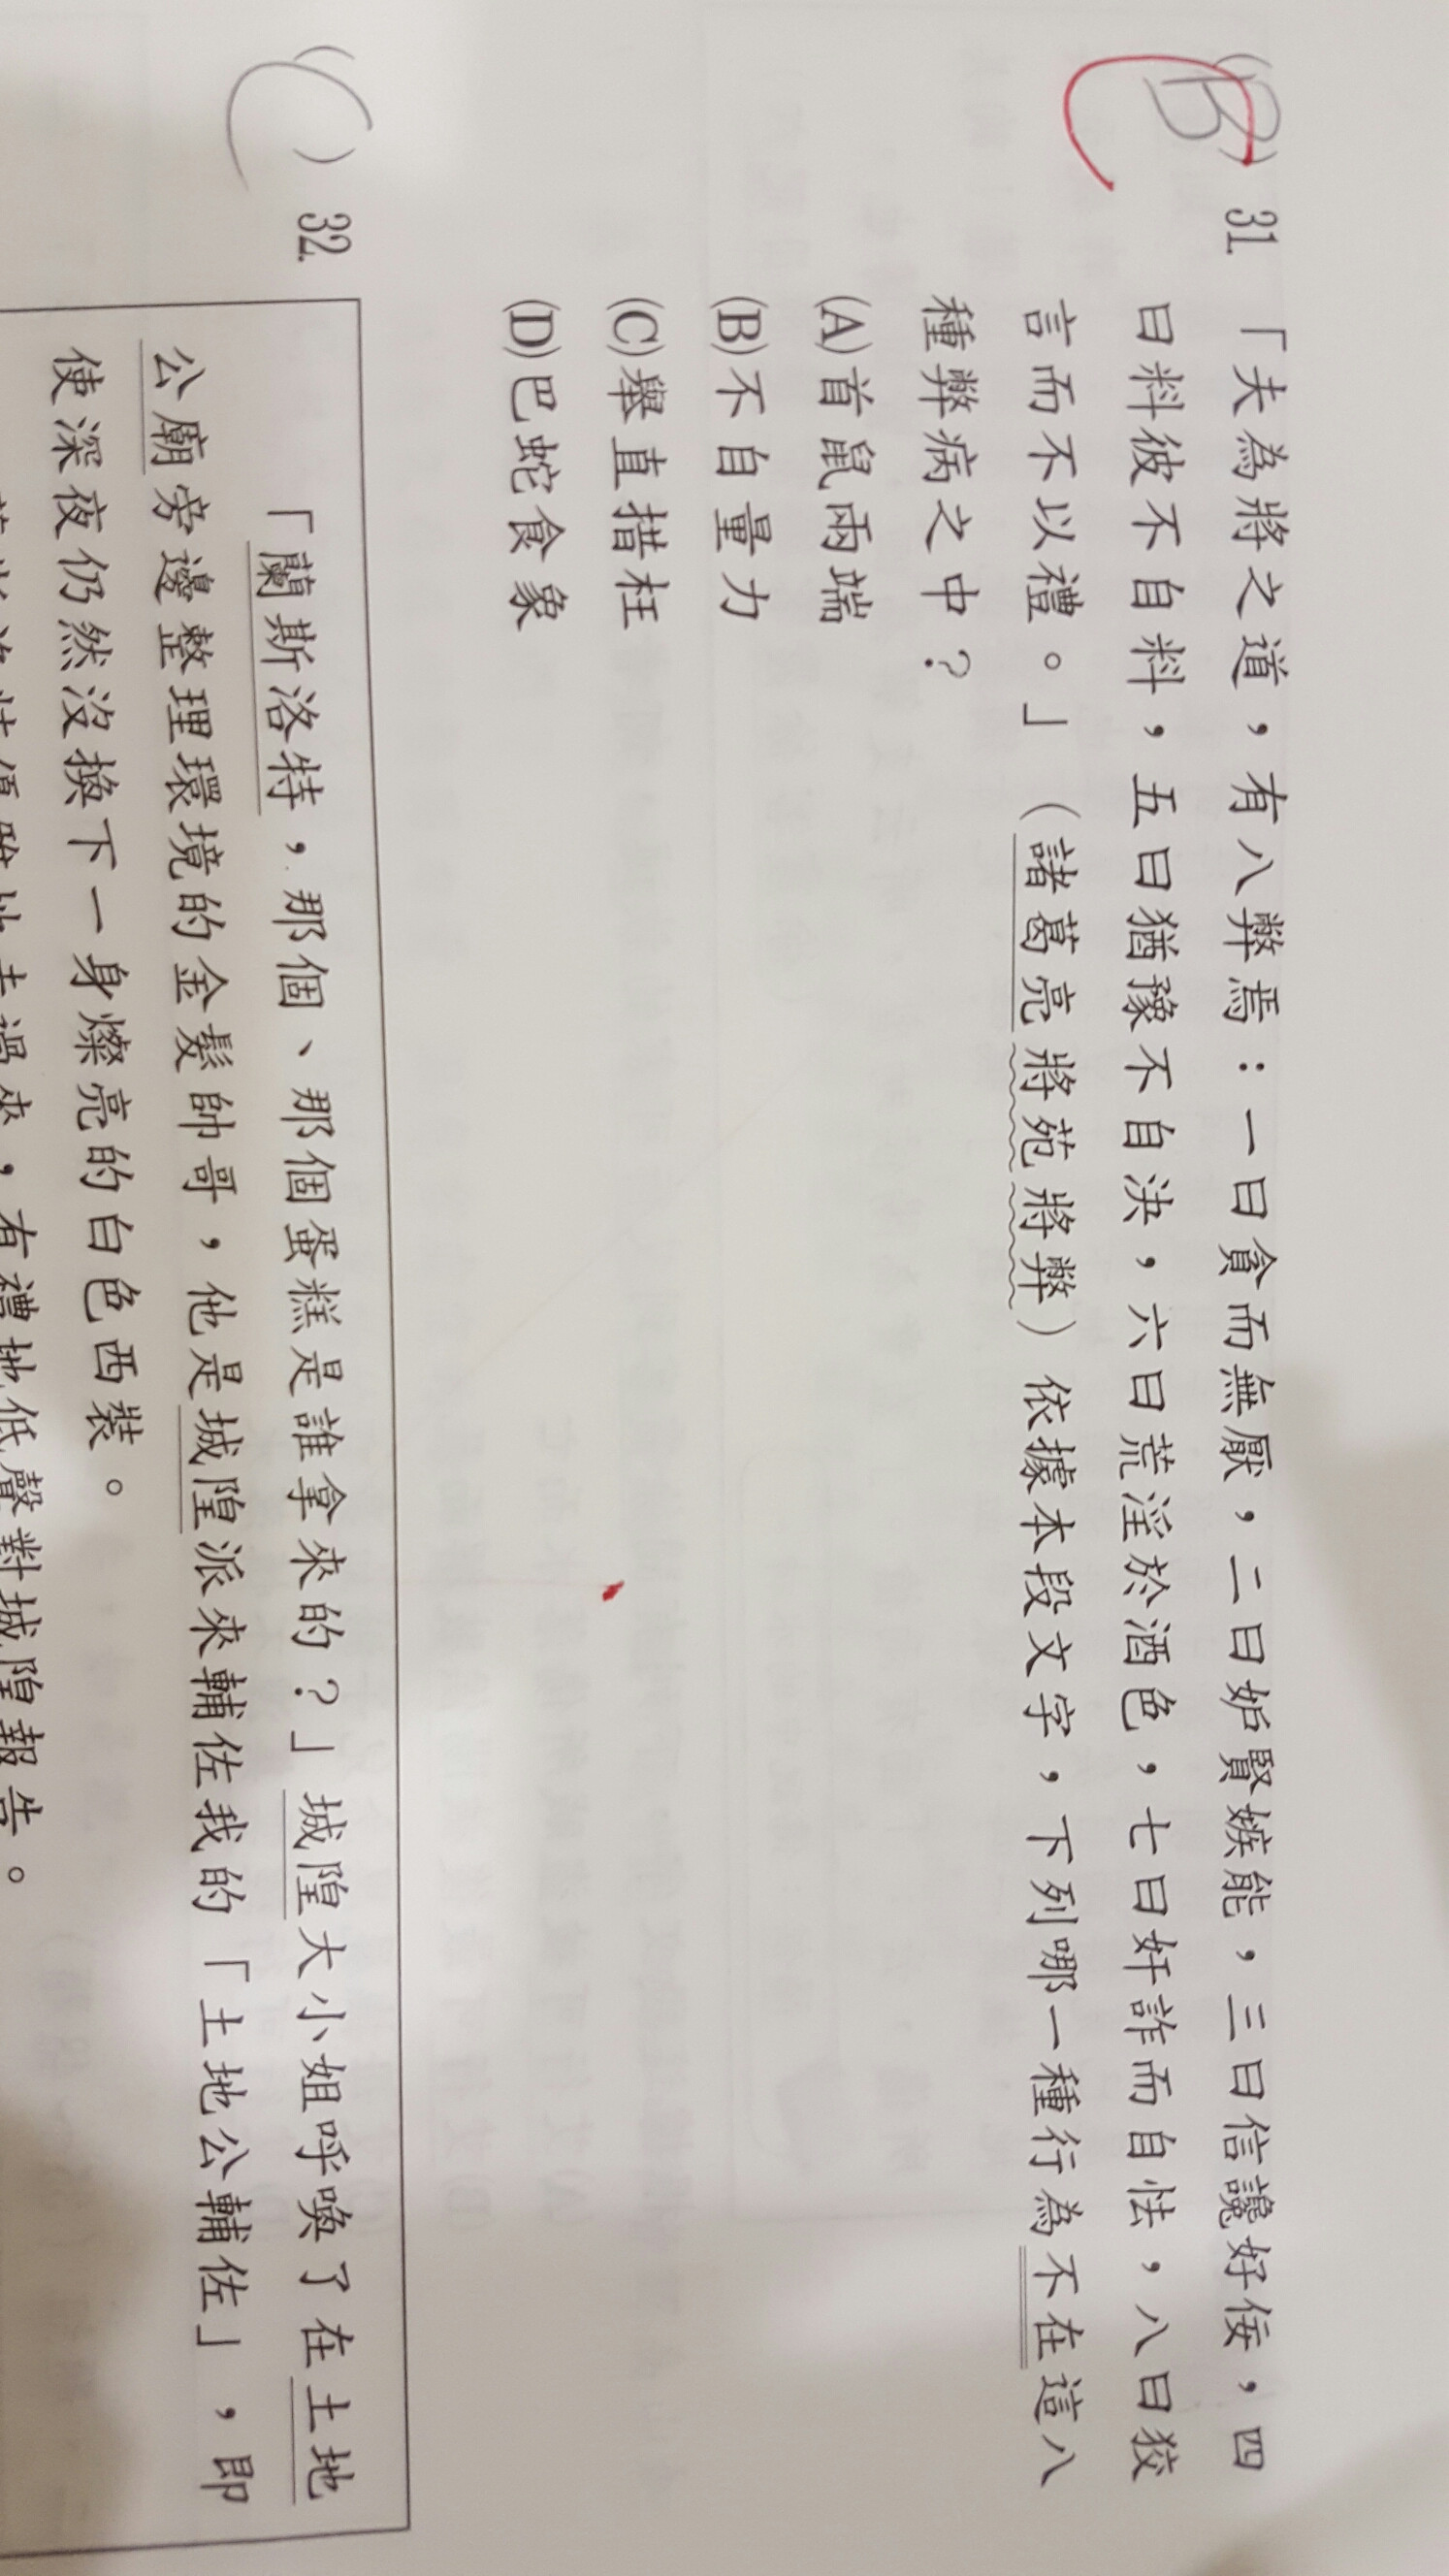 (B) C
31. 「夫為將之道，有八弊焉：一曰貪而無厭，二曰妒賢嫉能，三曰信讒好佞，四
曰料彼不自料，五曰猶豫不自決，六曰荒淫於酒色，七曰奸詐而自怯，八曰狡
言而不以禮。」（諸葛亮將苑將弊）依據本段文字，下列哪一種行為不在這八
種弊病之中？
(A)首鼠兩端
(B)不自量力
(C)舉直措枉
(D)巴蛇食象
(C) 32.
「蘭斯洛特，那個、那個蛋糕是誰拿來的？」城隍大小姐呼喚了在土地
公廟旁邊整理環境的金髮帥哥，他是城隍派來輔佐我的「土地公輔佐」，即
使深夜仍然沒換下一身燦亮的白色西裝。
來，有禮地低聲對城隍報告。